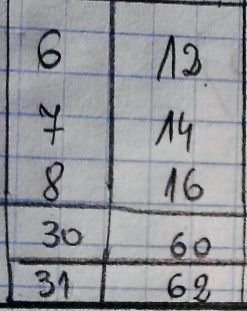 6 12
7 14
8 16
30 60
31 62